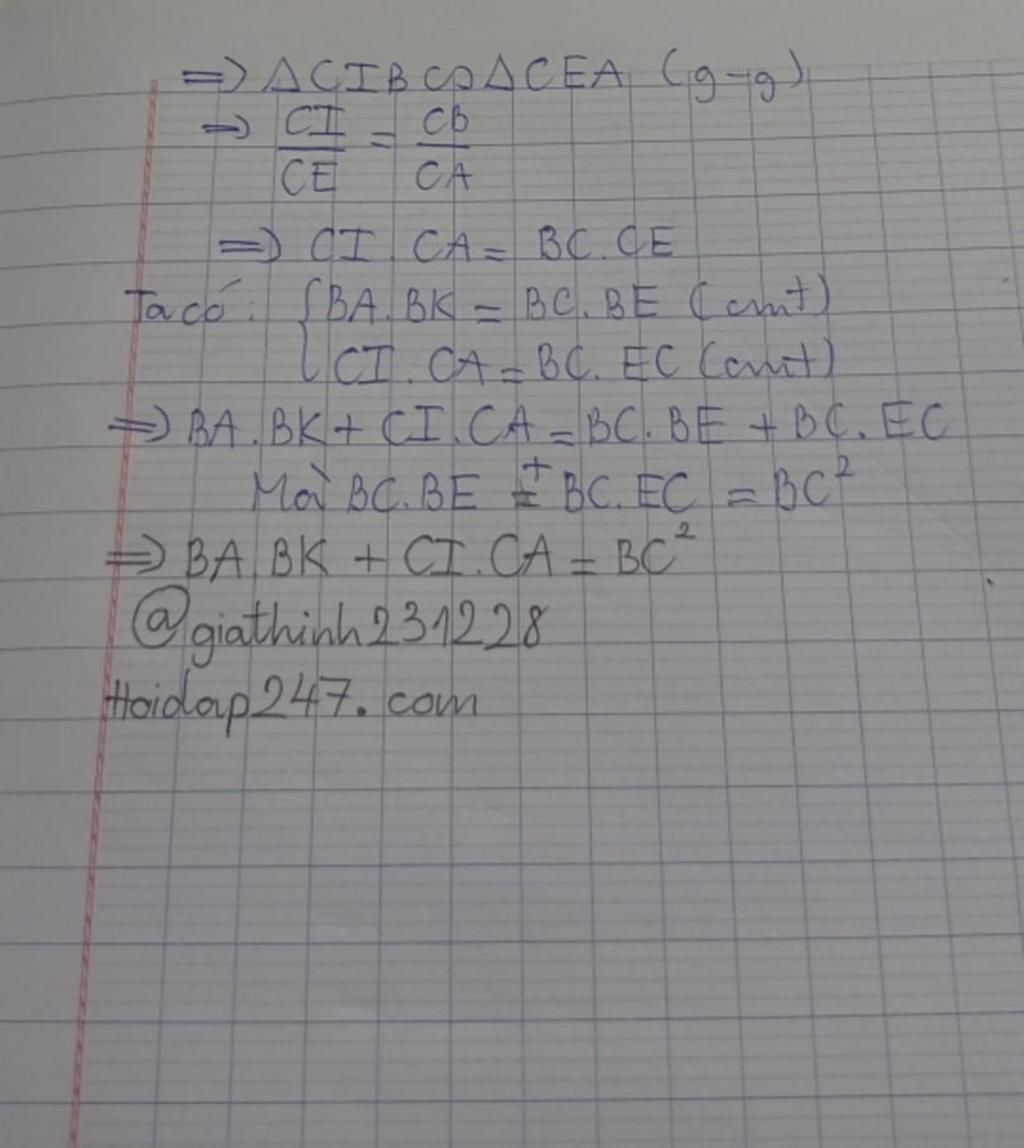 => ΔCIB ∽ ΔCEA (g-g)
=> CI/CE = CB/CA
=> CI.CA = BC.CE
Ta có: { BA.BK = BC.BE (cmt)
CI.CA = BC.EC (cmt)
=> BA.BK + CI.CA = BC.BE + BC.EC
Mà BC.BE + BC.EC = BC²
=> BA.BK + CI.CA = BC²
@giathinh231228
Hoidap247.com